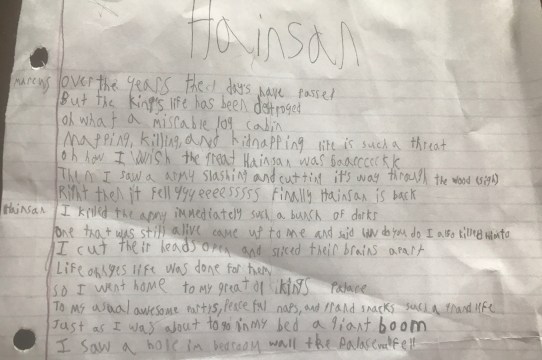 Hainsan
Marcus Over the years their days have passed
But the king's life has been destroyed
oh what a miscable log cabin
Mapping, killing, and kidnapping life is such a threat
oh how I wish the great Hainsan was baasccccck
Then I saw a army slashing and cutting it's way through the wood (sigh)
Right then it fell yyyeeeesssss finally Hainsan is back
Hainsan I killed the army immediately such a bunsh of dorks
One that was still alive came up to me and said how do you do I also killed
I cut their heads open and sliced their brains apart
Life oh yes life was done for them
so I went home to my great ol kings Palace
To my usual awesome partys, peaceful naps, and grand snacks such a grand life
Just as I was about to go in my bed a giant boom
I saw a hole in bedroom wall the fell